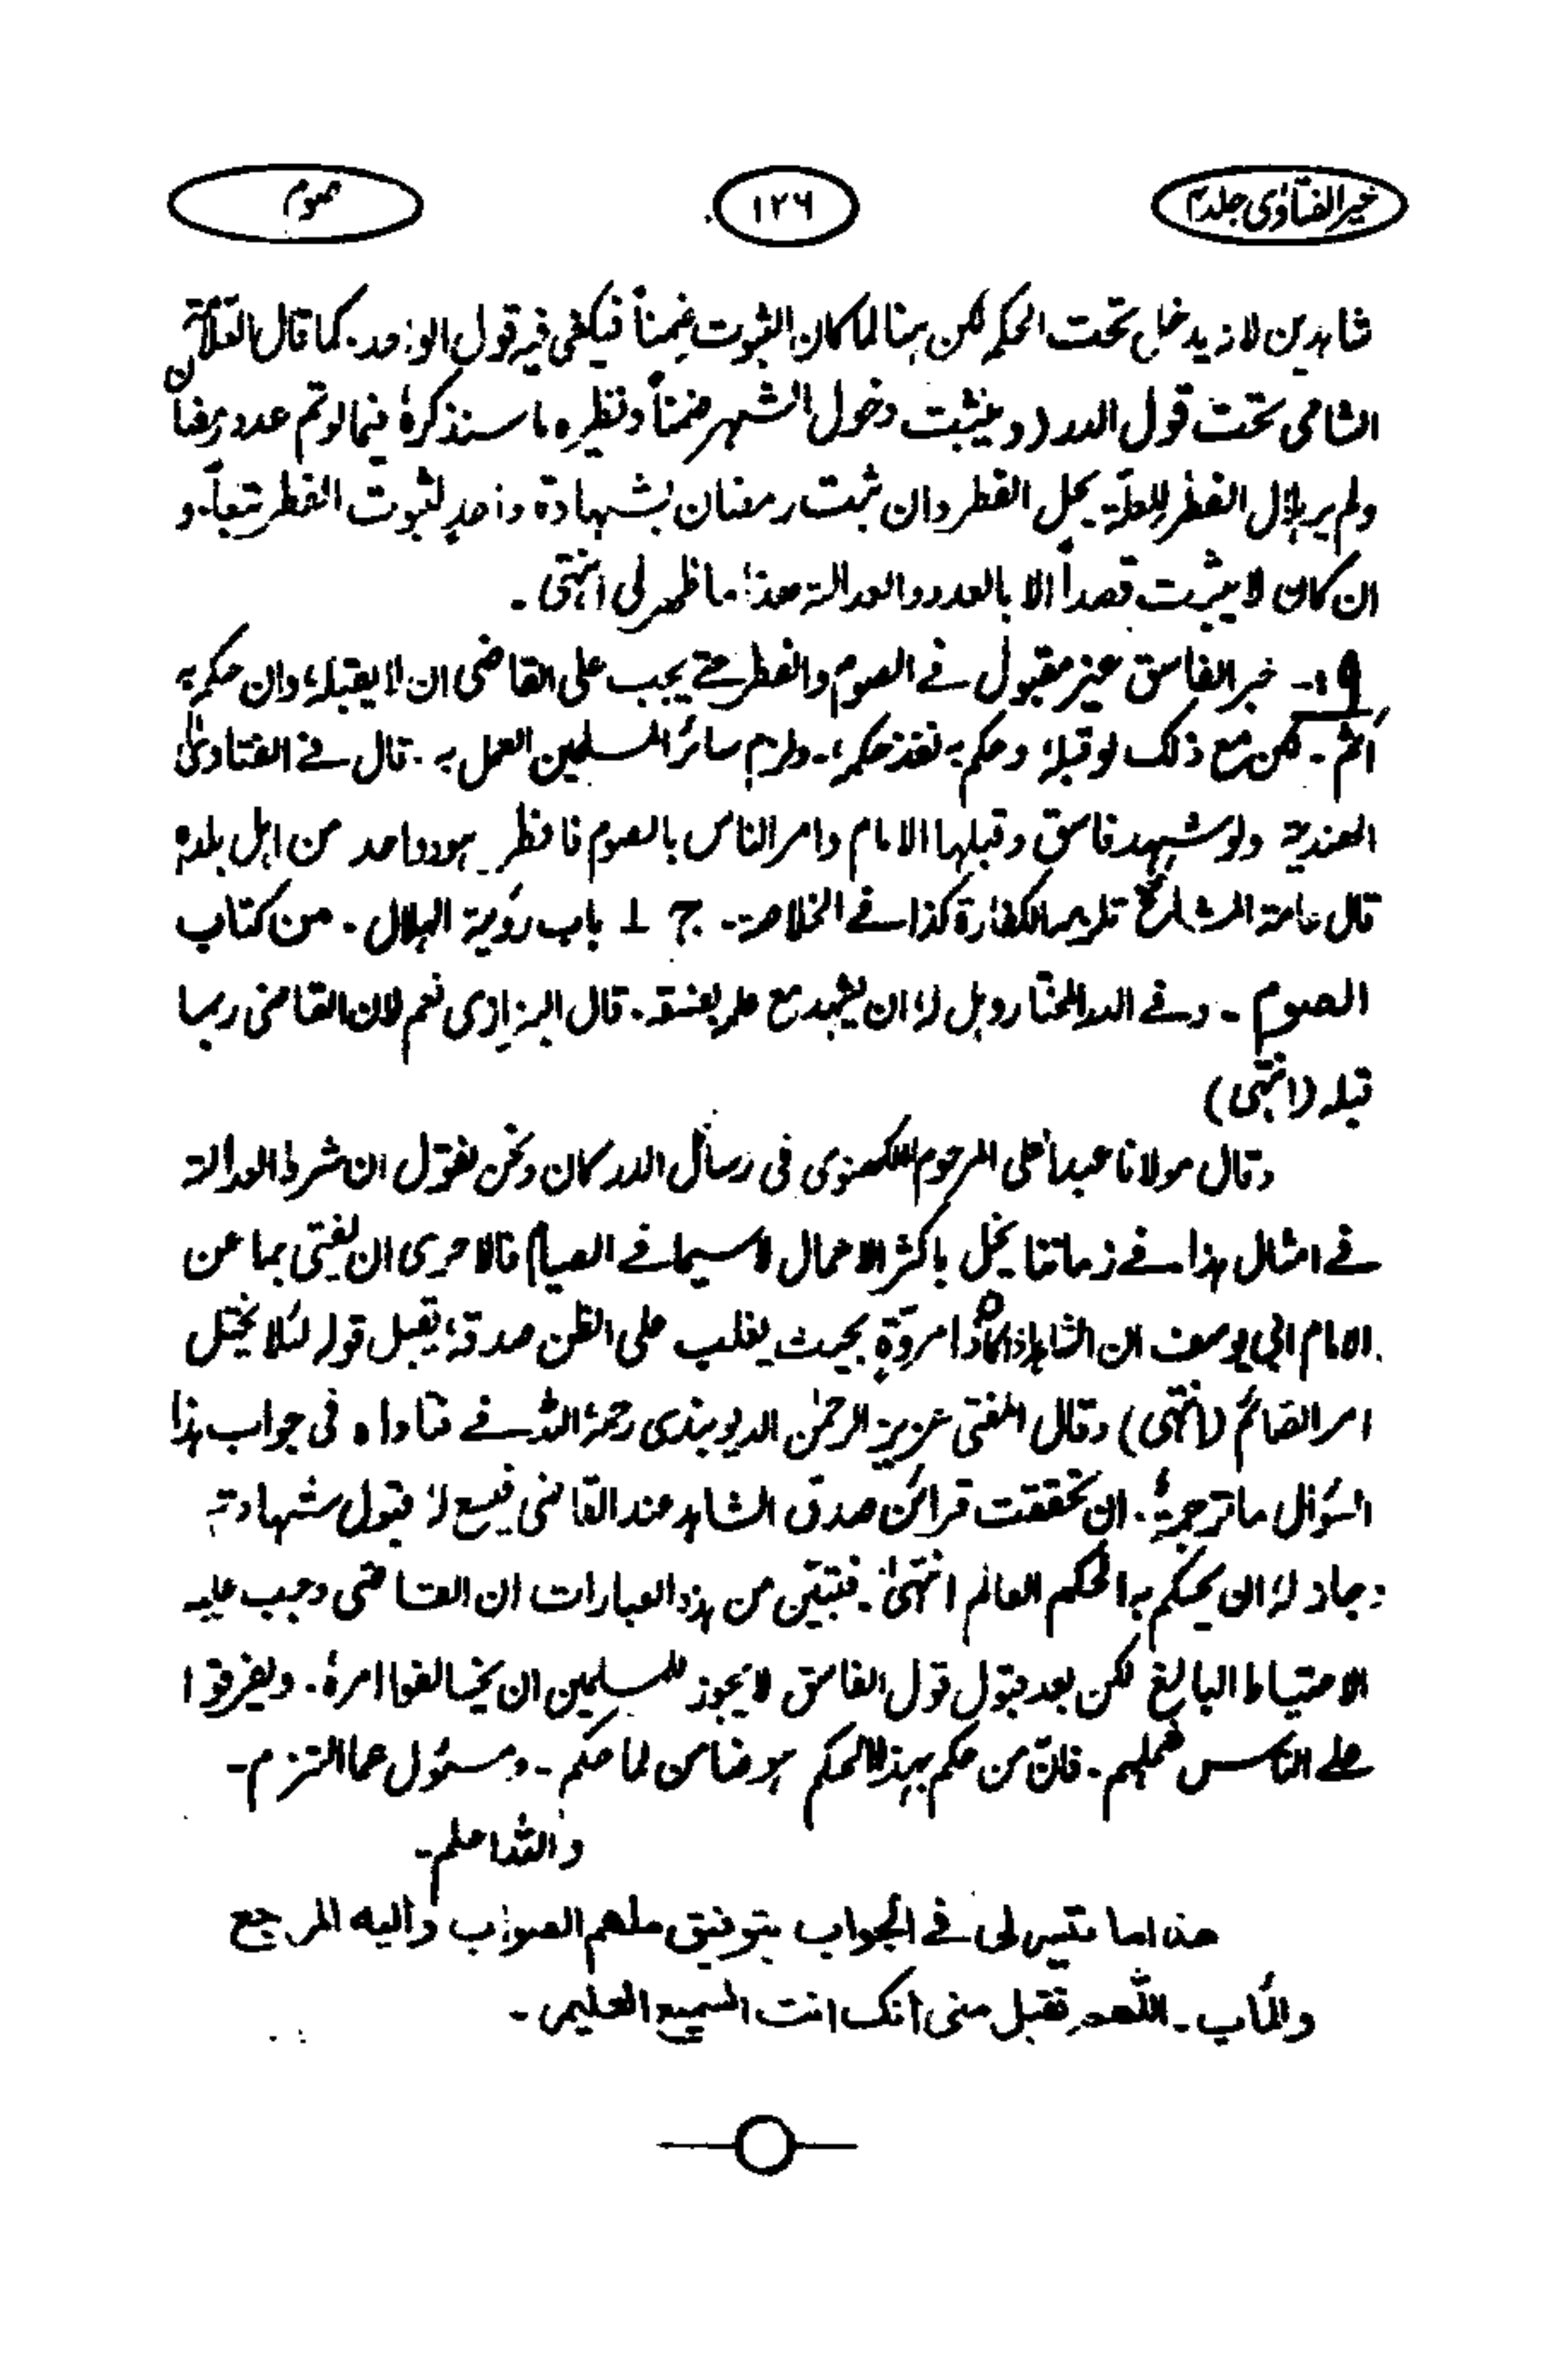 خیر الفتاوٰی جلد ۴
۱۲۶
صوم
شاہدین لانہ یدخل تحت الحکم لکن ہنا لما کان الثبوت ضمناً فیکفی فیہ قول الواحد۔ کما قال العلامۃ
الشامی تحت قول الدر (و یثبت دخول الشہر ضمناً ونظیرہ ما سنذکرہٗ فیما لو تم عدد رمضان
ولم یر ہلال الفطر للعلۃ یحل الفطر وان ثبت رمضان بشہادۃ واحدٍ لثبوت الفطر تبعاً۔ و
ان کان لا یثبت قصداً الا بالعدد والعدالۃ ھذا ما ظھر لی انتہی۔
۹:۔ خبر الفاسق غیر مقبول فے الصوم والفطر حتے یجب علی القاضی ان لا یقبلہٗ وان حکم بہ
اَثم۔ لکن مع ذلک لو قبلہٗ وحکم بہ نفذ حکمہٗ۔ ولزم سائر المسلمین العمل بہ۔ قال فے الفتاویٰ
الھندیۃ ولو شہد فاسق وقبلہا الامام وامر الناس بالصوم فافطر ہو وواحد من اہل بلدہ
قال عامۃ المشائخ تلزمہ الکفارۃ کذا فے الخلاصۃ۔ ج ۱ باب رؤیۃ الہلال۔ من کتاب
الصوم۔ وفے الدر المختار وہل لہٗ ان یشہد مع علمہ بفسقہ۔ قال البزازی نعم لان القاضی ربما
قبلہ (انتہی)
وقال مولانا عبد الحی المرحوم اللکھنوی فی رسائل الارکان ونحن نقول ان شرط العدالۃ
فے امثال ہذا فے زماننا یخل باکثر الاعمال لا سیما فے الصیام فالاحری ان یفتی بما عن
الامام ابی یوسف ان الشاہد اذا کان ذا مروّۃٍ بحیث یغلب علی الظن صدقہٗ یقبل قولہ لئلا یختل
امر الصائم (انتہی) وقال المفتی عزیز الرحمٰن الدیوبندی رحمۃ اللہ فے فتاواہ فی جواب ہذا
السؤال ما ترجمتہٗ۔ ان تحققت قرائن صدق الشاہد عند القاضی فیسع لہٗ قبول شہادتہ
وجاز لہٗ ان یحکم بہ الحکم العام انتہیٰ۔ فتبیّن من ہذہ العبارات ان القاضی وجب علیہ
الاحتیاط البالغ لکن بعد قبول قول الفاسق لا یجوز للمسلمین ان یخالفوا امرہٗ۔ ویفرقوا
علے الناس شملہم۔ فانّ من حکم بہذا الحکم ہو ضامن لما حکم۔ ومسئول عما التزم۔
واللہ اعلم۔
ھذا ما تیسر لی فے الجواب بتوفیق ملھم الصواب والیہ المرجع
والمآب۔ اللّٰھم تقبل منی انک انت السمیع العلیم۔